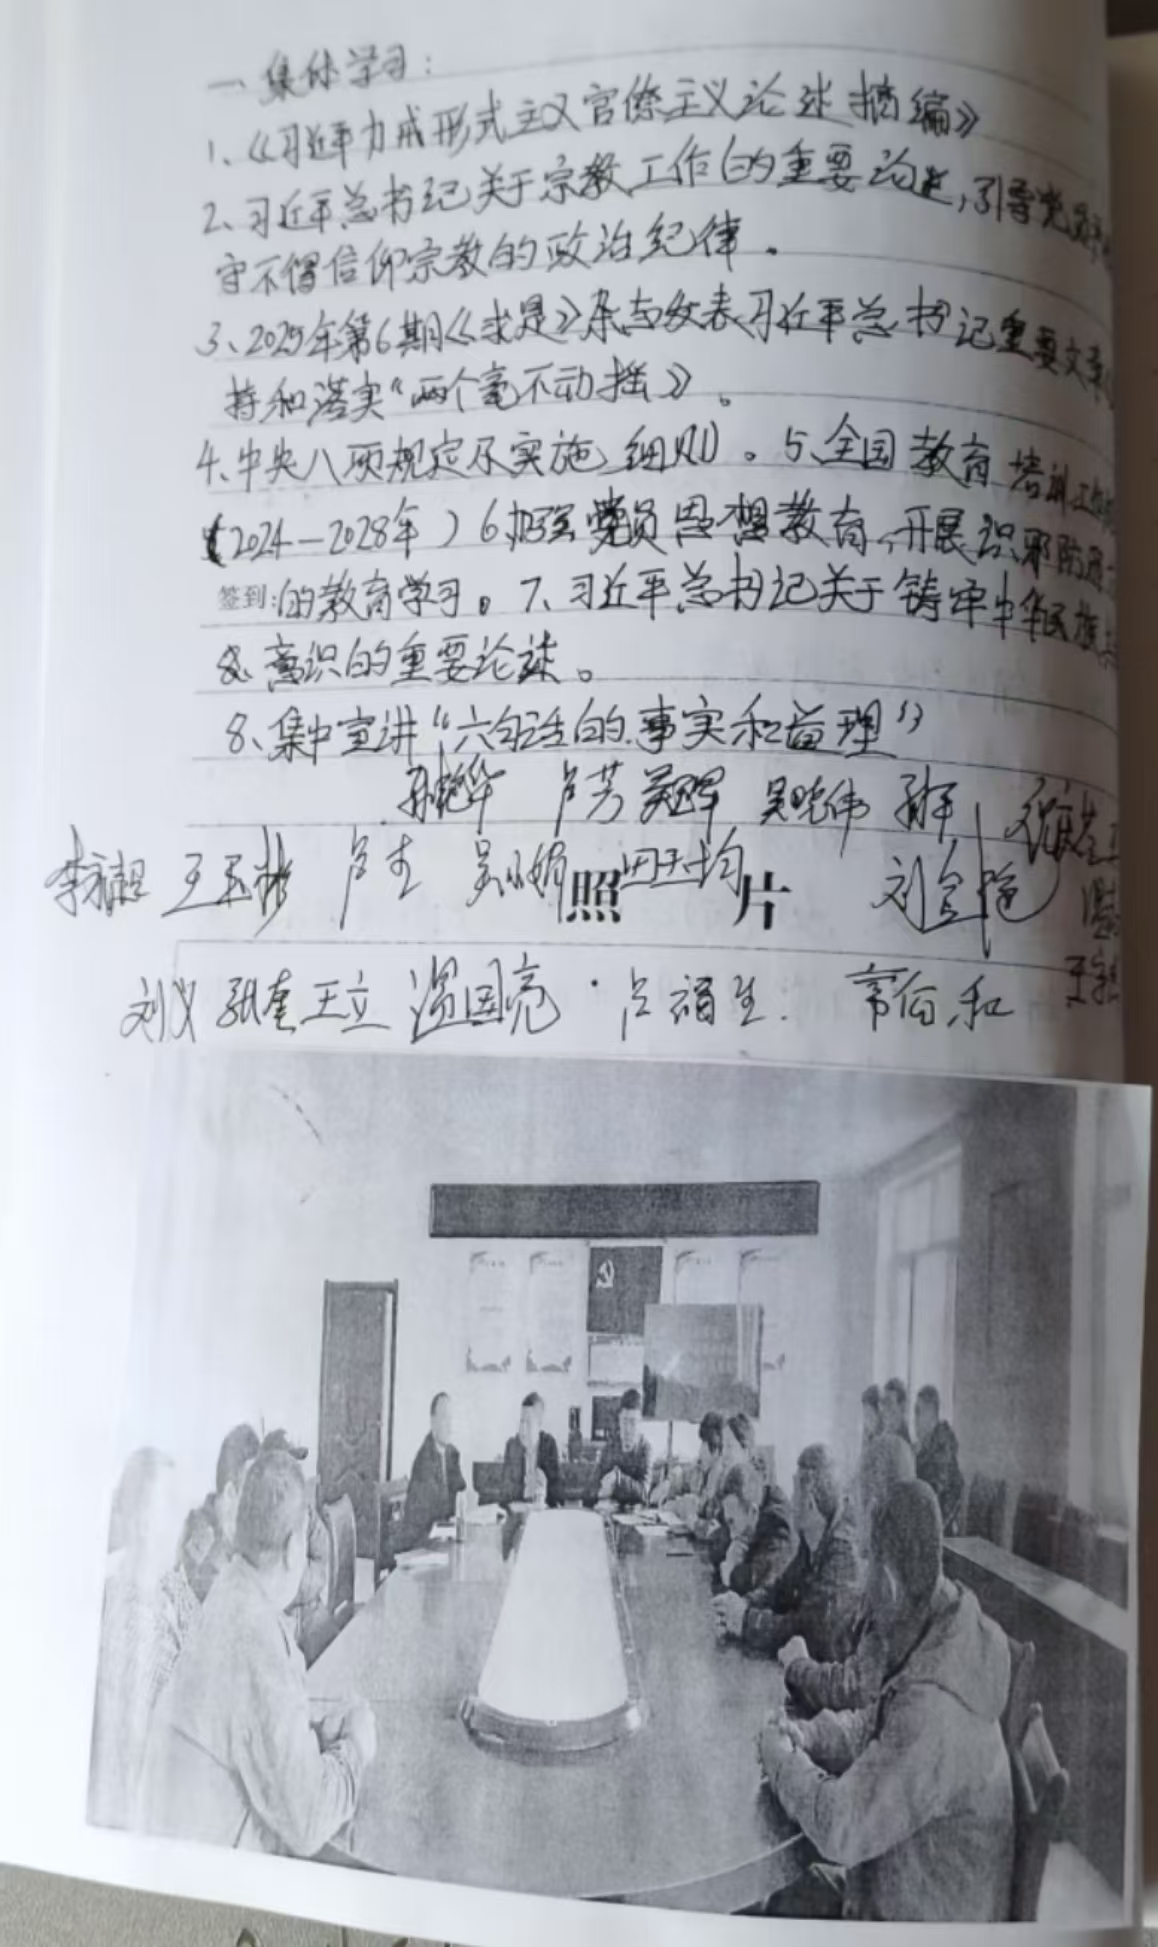 一 集体学习：
1、《习近平力戒形式主义官僚主义论述摘编》
2、习近平总书记关于宗教工作的重要论述，引导党员
守不得信仰宗教的政治纪律。
3、2025年第6期《求是》杂志发表习近平总书记重要文章
持和落实"两个毫不动摇》。
4、中央八项规定及实施细则。5、全国教育培训工作
（2024—2028年）6、加强党员思想教育，开展识邪防
签到：的教育学习。7、习近平总书记关于铸牢中华民族
意识的重要论述。
8、集中宣讲"六句话的事实和道理"
卢芳 吴晓伟
李 王玉彬 卢生 吴小娟 田玉均 刘
照 片
刘义 张奎 王立 温国亮 卢福生 常佰和